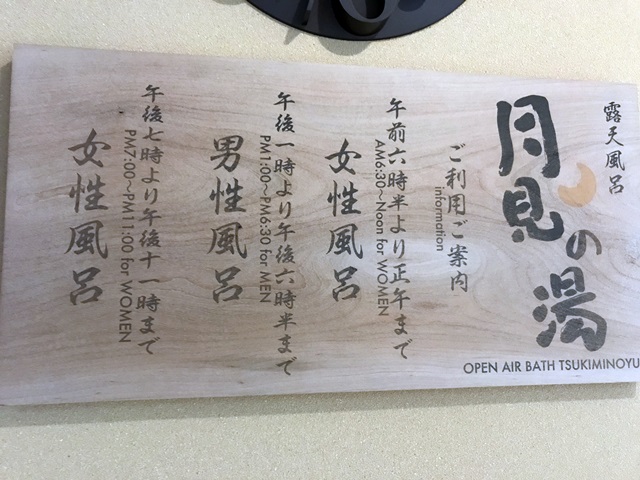 露天風呂
月見の湯
OPEN AIR BATH TSUKIMINOYU
ご利用ご案内
information
午前六時半より正午まで
AM6:30~Noon for WOMEN
女性風呂
午後一時より午後六時半まで
PM1:00~PM6:30 for MEN
男性風呂
午後七時より午後十一時まで
PM7:00~PM11:00 for WOMEN
女性風呂